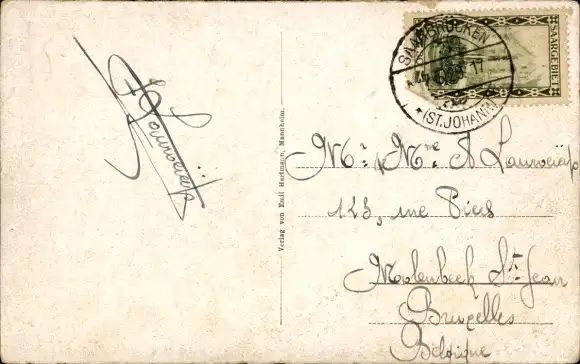 SAARBRÜCKEN
(ST. JOHANN)
SAARGEBIET
Verlag von Emil Hartmann, Mannheim.
Mr. Mme A Lauweijs
123, rue Piers
Molenbeek St-Jean
Bruxelles
Belgique